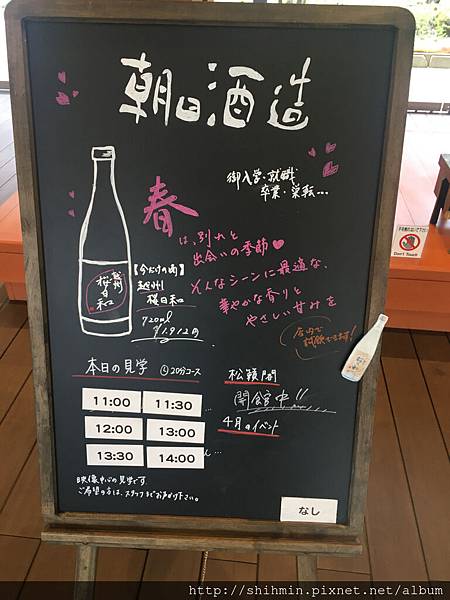 朝日酒造
御入学・就職
卒業・巣転…
春
は、別れと
出会いの季節♥
そんなシーンに最適な、
華やかな香りと
やさしい甘みを
越州
桜日和
【今だけのお酒】
越州
桜日和
720ml
¥1,912円
店内で
試飲できます!
Don't Touch
本日の見学 ④20分コース
11:00 11:30
12:00 13:00
13:30 14:00
松籟閣
開館中!!
4月のイベント
なし
映像中心の見学です。
ご希望の方は、スタッフまでお声かけ下さい。
http://shihmin.pixnet.net/album